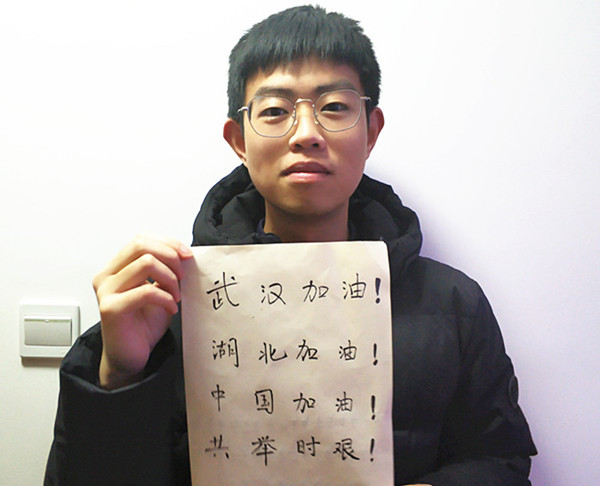 武汉加油!
湖北加油!
中国加油!
共举时艰!